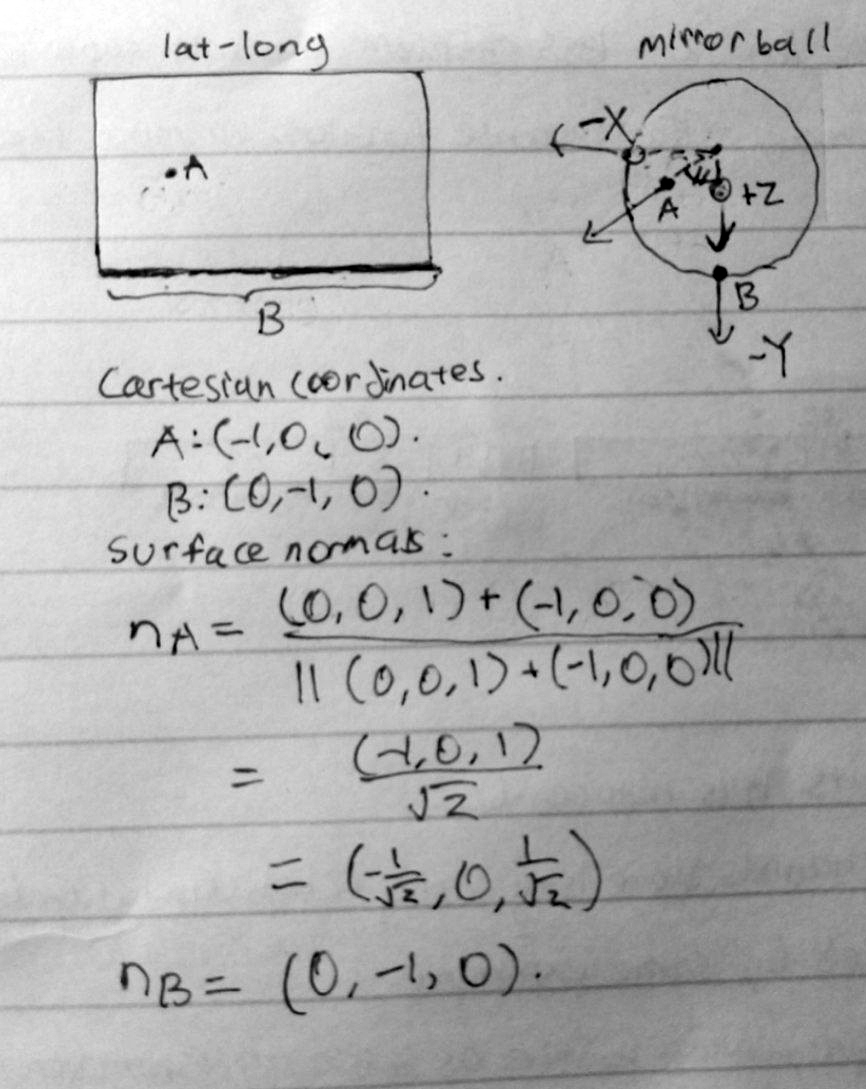 lat-long
mirrorball
A
B
-X
A
+Z
B
-Y
Cartesian coordinates.
A: (-1, 0, 0).
B: (0, -1, 0).
Surface normals:
nA = (0, 0, 1) + (-1, 0, 0)
|| (0, 0, 1) + (-1, 0, 0) ||
= (-1, 0, 1)
√2
= (-1/√2, 0, 1/√2)
nB = (0, -1, 0).